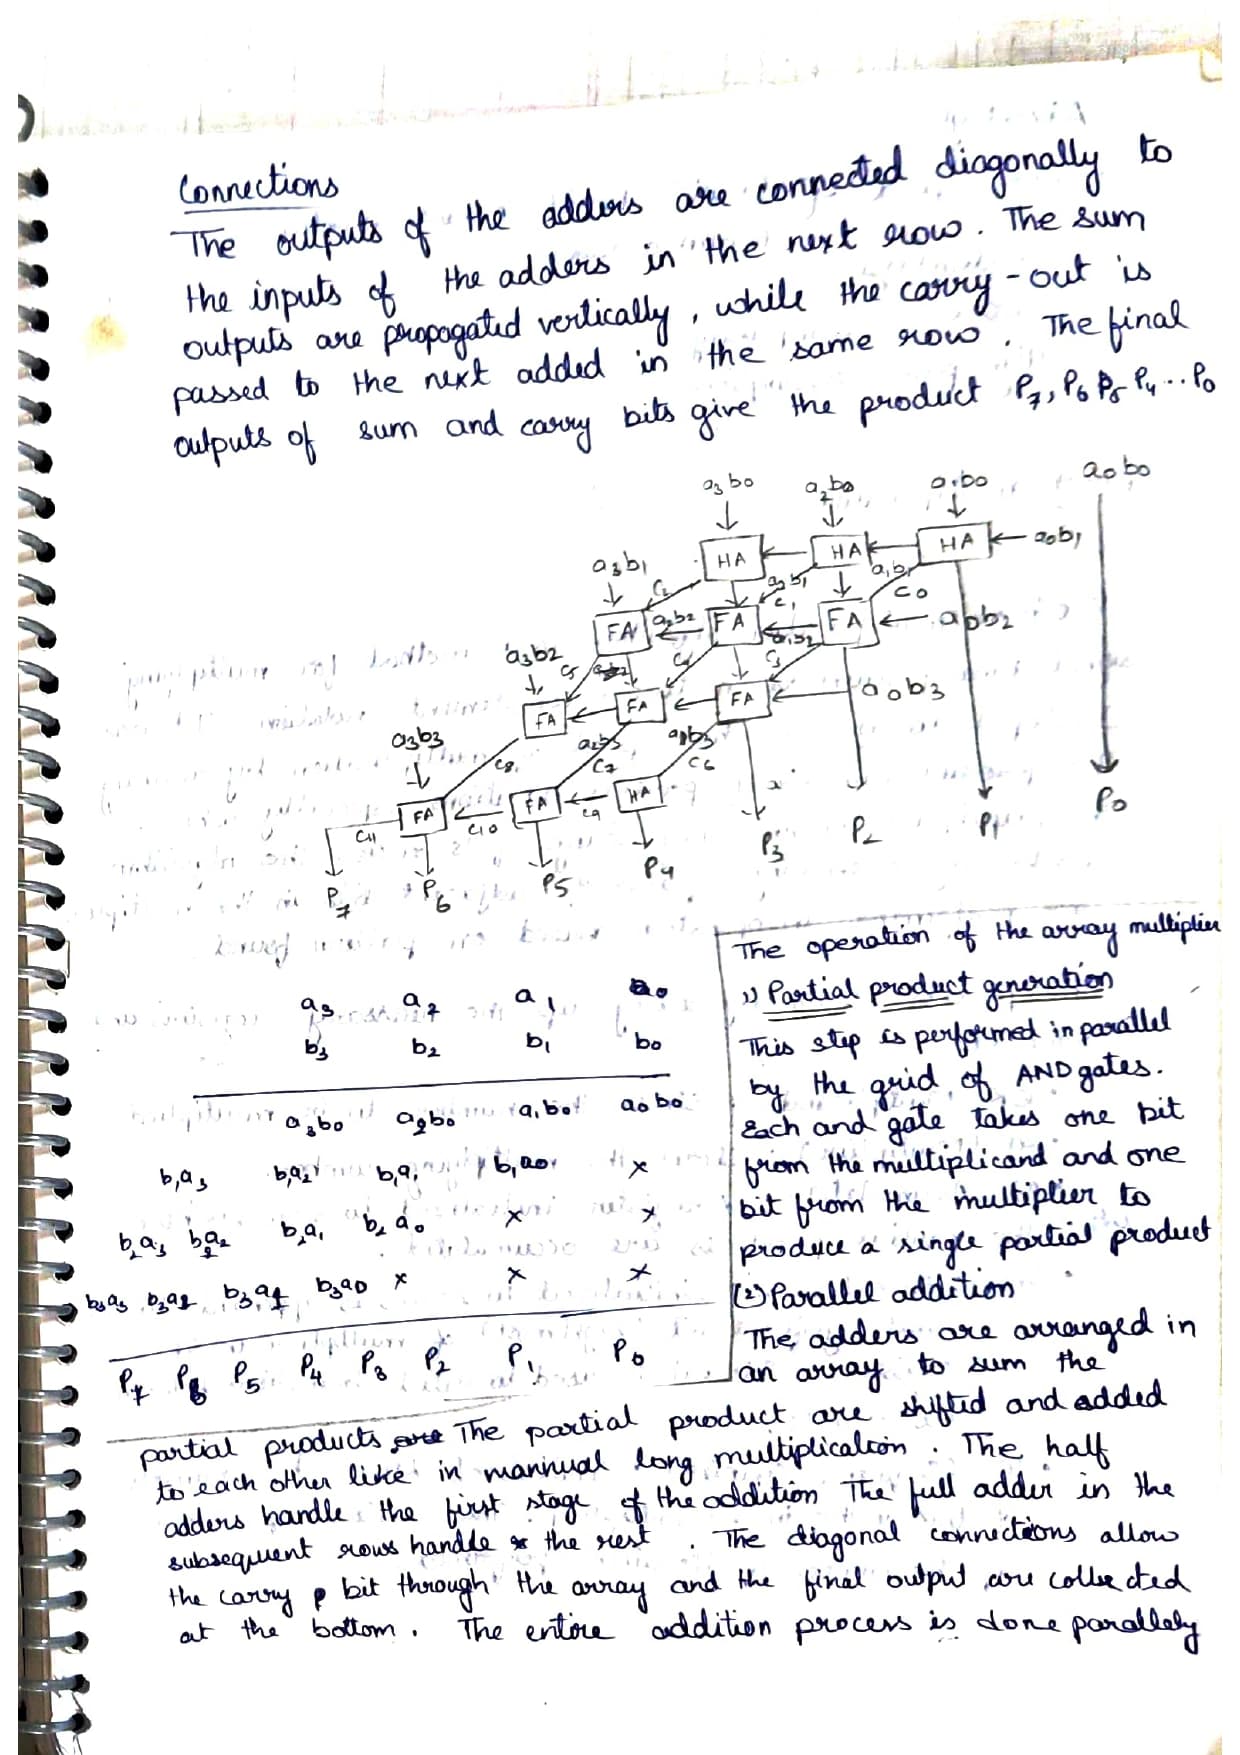 Connections
The outputs of the adders are connected diagonally to
the inputs of the adders in the next row. The sum
outputs are propogated vertically, while the carry-out is
passed to the next added in the same row. The final
outputs of sum and carry bits give the product P7, P6 P5 P4... P0
a3b0 a2b0 a1b0 a0b0
HA HA HA a0b1
a3b1 C2 a2b1 C1 a1b1 C0
FA a2b2 FA a1b2 FA a0b2
a3b2 C5 C4 C3
FA FA FA a0b3
a3b3 C8 a2b3 C7 a1b3 C6
FA FA HA
C11 C10 C9
P7 P6 P5 P4 P3 P2 P1 P0
a3 a2 a1 a0
b3 b2 b1 b0
a3b0 a2b0 a1b0 a0b0
b1a3 b1a2 b1a1 b1a0 x
b2a3 b2a2 b2a1 b2a0 x x
b3a3 b3a2 b3a1 b3a0 x x x
P7 P6 P5 P4 P3 P2 P1 P0
The operation of the array multiplier
1) Partial product generation
This step is performed in parallel
by the grid of AND gates.
Each and gate takes one bit
from the multiplicand and one
bit from the multiplier to
produce a single partial product
(2) Parallel addition
The adders are arranged in
an array to sum the
partial products The partial product are shifted and added
to each other like in mannual long multiplication. The half
adders handle the first stage of the addition The full adder in the
subsequent rows handle the rest. The diagonal connections allow
the carry bit through the array and the final output are collected
at the bottom. The entire addition process is done parallely